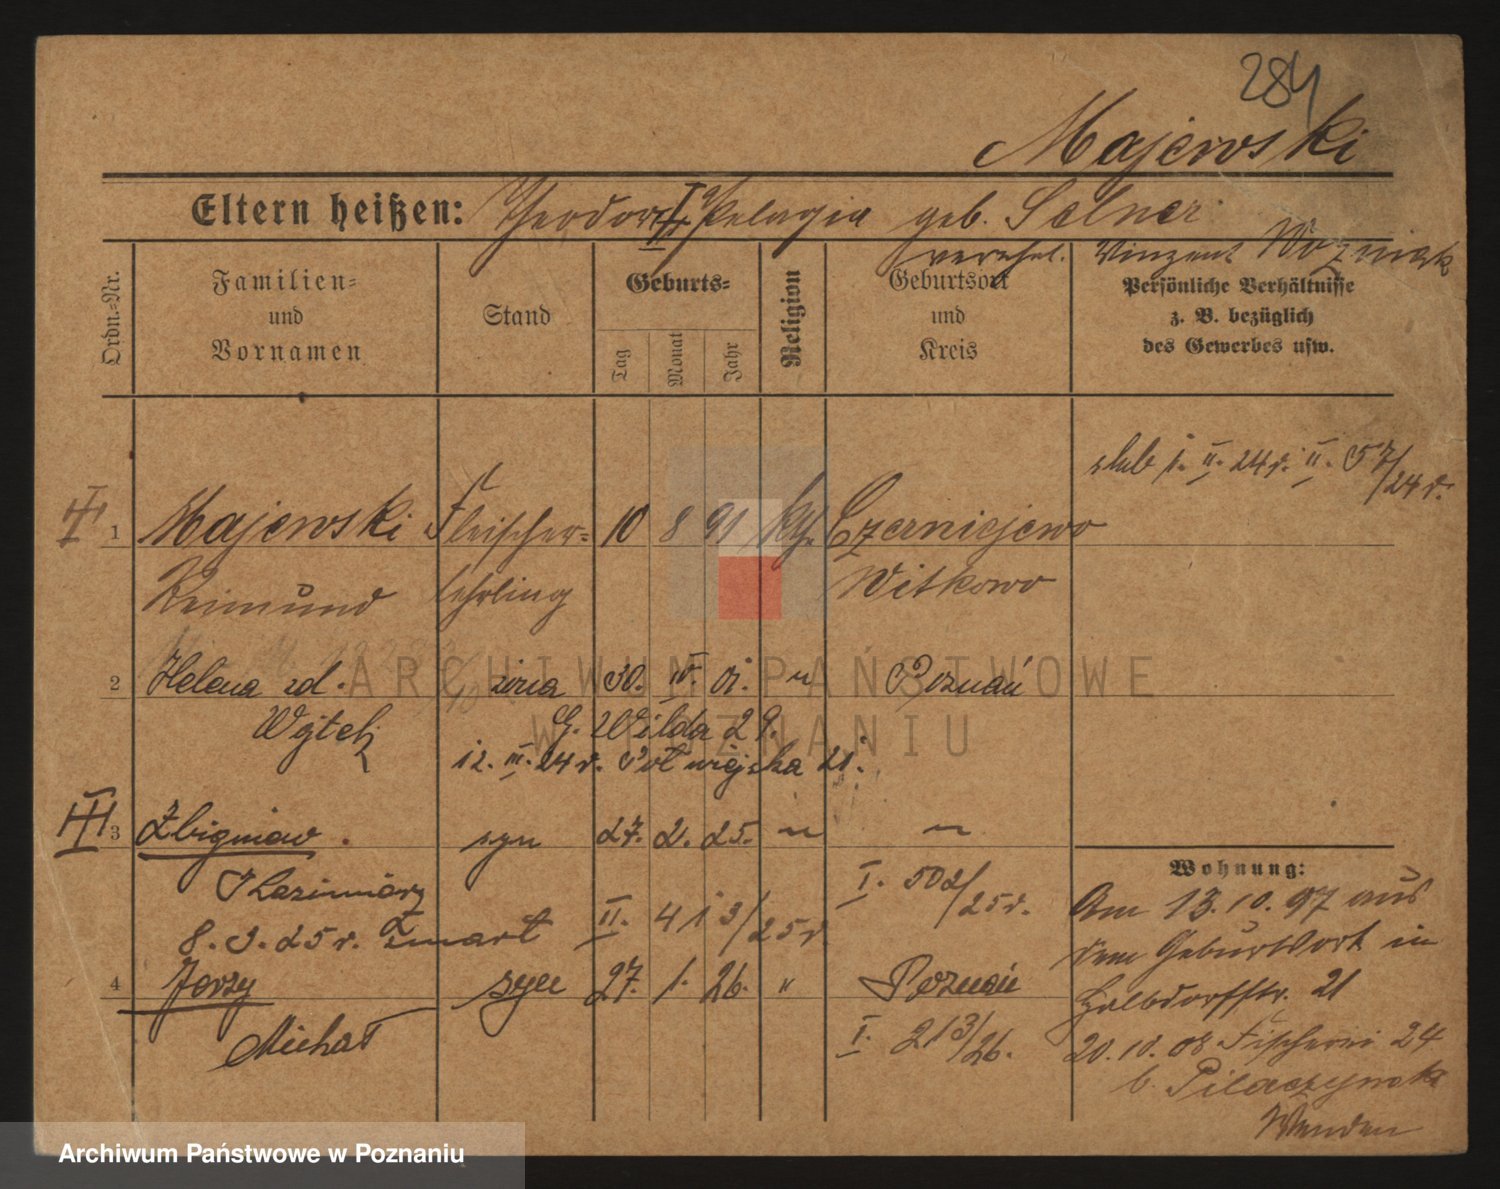 284
Majewski
Eltern heißen: Theodor Pelagia geb. Selner
verehel. Vinzent Wozniak
Ordn.=Nr.
Familien= und Vornamen
Stand
Geburts=
Tag
Monat
Jahr
Religion
Geburtsort und Kreis
Persönliche Verhältnisse z. B. bezüglich des Gewerbes usw.
ślub 1. II. 24 r. II. 57/24 r.
III
1 Majewski Fleischer= 10 8 91 kth. Czerniejewo
Reimund lehrling Witkowo
2 Helena zd. żona 30. IV. 01. " Poznań
Wojtek G. Wilda 29.
12. III. 24 r. Półwiejska 21.
III
3 Zbigniew syn 27. 2. 25. " "
Kazimierz I. 502/25 r.
8. 3. 25 r. Zmarł II. 413/25 r
4 Jerzy syn 27. 1. 26. " Poznań
Michał I. 213/26.
Wohnung:
Am 13.10.97 aus
dem Geburtsort in
Halbdorfstr. 21
20.10.08 Fischerei 24
b. Pilaczynski
ARCHIWUM PAŃSTWOWE
W POZNANIU
Archiwum Państwowe w Poznaniu